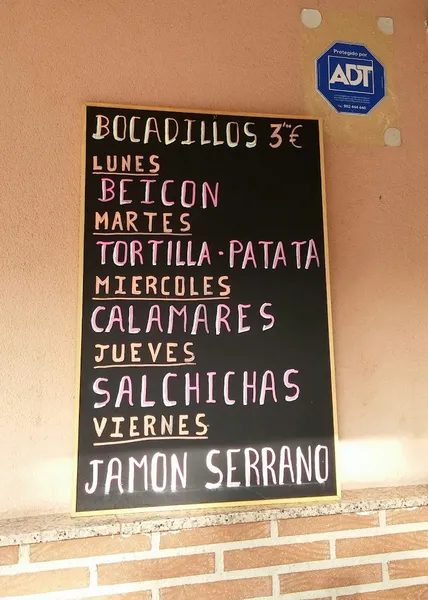 Protegido por
ADT
BOCADILLOS 3'""€
LUNES
BEICON
MARTES
TORTILLA·PATATA
MIERCOLES
CALAMARES
JUEVES
SALCHICHAS
VIERNES
JAMON SERRANO